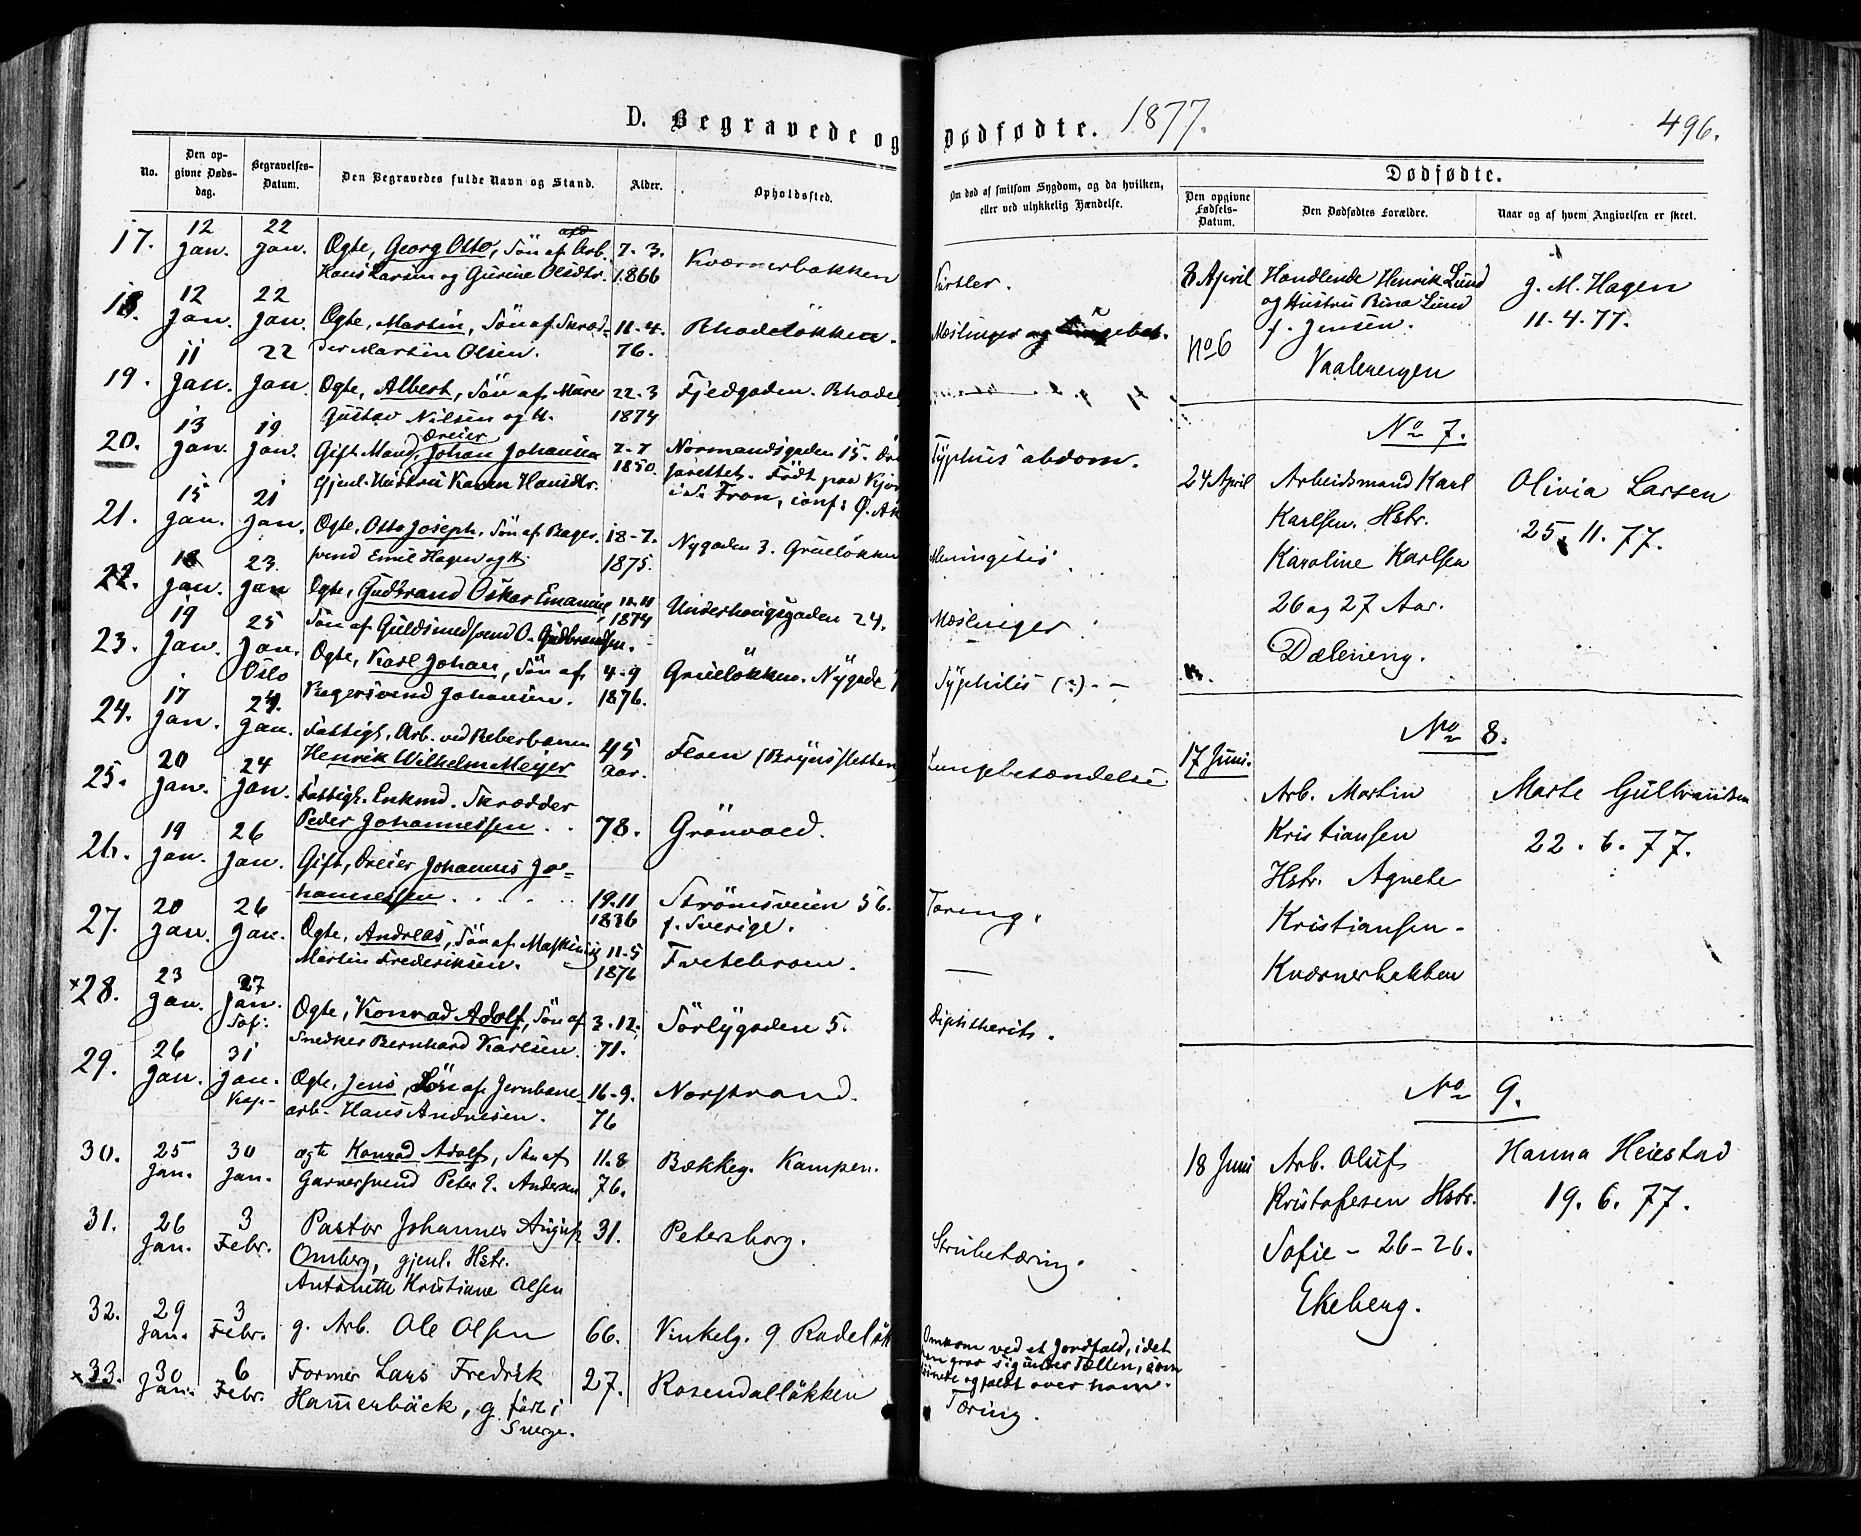 D. Begravede og Dødfødte. 1877. 496.
No.
Den opgivne Dødsdag.
Begravelses-Datum.
Den Begravedes fulde Navn og Stand.
Alder.
Opholdssted.
Om død af smitsom Sygdom, og da hvilken, eller ved ulykkelig Hændelse.
Dødfødte.
Den opgivne Fødsels-Datum.
Den Dødfødtes Forældre.
Naar og af hvem Angivelsen er skeet.
17. 12 Jan. 22 Jan. Ægte, Georg Otto, Sön af Arb. 7-3. Kværnerbakken
Hans Larsen og Gurine Olsdtr. 1866
18. 12 Jan. 22 Jan. Ægte, Martin, Sön af Skræd- 11-4. Rhodelökken. Mæslinger og
der Martin Olsen. 76.
19. 11 Jan. 22 Jan. Ægte, Albert, Sön af Murer 22-3 Fjedgaden. Rhodel
Gustav Nilsen og H. 1874
20. 13 Jan. 19 Jan. Gift Mand, Dreier Johan Johansen 7-7 Normandsgaden 15. Typhus abdom.
Gjenl. Hustru Karen Hansdtr. 1850. Födt paa
i S. Fron, conf: Ø. Ak
21. 15 Jan. 21 Jan. Ægte, Otto Joseph, Sön af Bager- 18-7. Nygaden 3. Grüelökken Meningitis
svend Emil Hagen og H. 1875.
22. 18 Jan. 23 Jan Ægte, Gudbrand Oskar Emanuel, 11-11 Underhaugsgaden 24. Mæslinger
Sön af Guldsmedsvend O. Gudbrandsen. 1874
23. 19 Jan. 25 Jan. Oslo Ægte, Karl Johan, Sön af 4-9 Grüelökken. Nygade Syphilis (?).-
Bagersvend Johansen. 1876.
24. 17 Jan. 24. Jan. Fattigl. Arb. ved Reberbanen 45 Aar. Floen (Brynssletten) Lungebetændelse
Henrik Wilhelm Meyer
25. 20 Jan. 24 Jan. Fattigl. Enkmd. Skrædder
Peder Johannessen. 78. Grönvold.
26. 19 Jan. 26 Jan. Gift, Dreier Johannes Jo-
hannessen 19.11 1836 Strömsveien 56. Tæring.
f. Sverige.
27. 20 Jan. 26 Jan. Ægte, Andreas, Sön af Maskinist 11-5 Tvetebroen. —
Martin Frederiksen. 1876
×28. 23 Jan. 27 Jan. Sof: Ægte, Konrad Adolf, Sön af 3.12. Sörlygaden 5. Diphtherits.
Snedker Bernhard Karlsen. 71.
29. 26 Jan. 31 Jan. Kap- Ægte, Jens, Sön af Jernbane- 16-9. Norstrand.
arb. Hans Andresen. 76
30. 25 Jan. 30 Jan. ægte Konrad Adolf, Sön af 11.8 Bækkeg. Kampen.
Garversvend Peter E. Andersen 76.
31. 26 Jan. 3 Febr. Pastor Johannes August 31. Petersborg. Strubetæring.
Omberg, gjenl. Hstr.
Antonette Kristiane Olsen
32. 29 Jan. 3 Febr. g. Arb. Ole Olsen 66. Vinkelg. 9 Rodelök Omkom ved et Jordfald, idet
han grov sig under Tællen, som
og faldt over ham.
×33. 30 Jan. 6 Febr. Former Lars Fredrik 27. Rosendallökken Tæring.
Hammerbäck, g. född i
Sverge.
8 April Handlende Henrik Lund J. M. Hagen
og Hustru Rina Lund 11.4.77.
No 6 f. Jensen.
Vaalerengen
No 7.
24 April Arbeidsmand Karl Olivia Larsen
Karlsen. Hstr. 25. 11. 77.
Karoline Karlsen
26 og 27 Aar.
Dæleneng.
No 8.
17 Juni. Arb. Martin Marte Gulbrandsen
Kristiansen 22. 6. 77.
Hstr. Agnete
Kristiansen-
Kværnerbakken
No 9.
18 Juni Arb. Oluf Hanna Heiestad
Kristofersen Hstr. 19. 6. 77.
Sofie - 26-26.
Ekeberg.